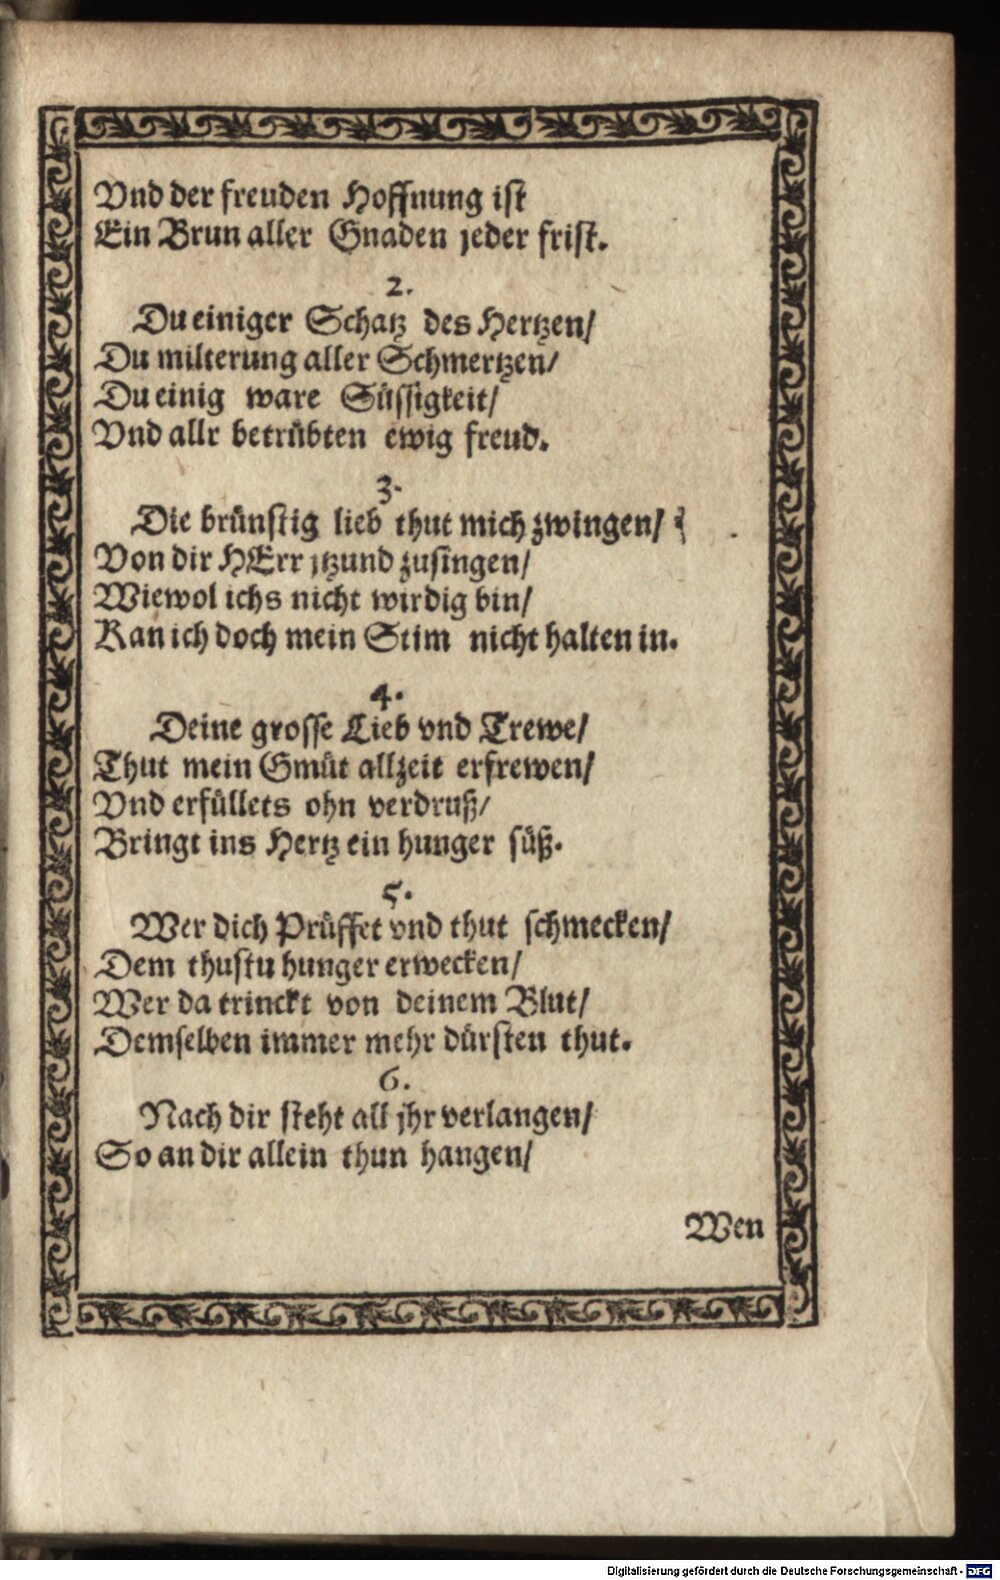 Vnd der freuden Hoffnung ist
Ein Brun aller Gnaden jeder frist.
2.
Du einiger Schatz des Hertzen/
Du milterung aller Schmertzen/
Du einig ware Süssigkeit/
Vnd allr betrübten ewig freud.
3.
Die brünstig lieb thut mich zwingen/
Von dir HErr jtzund zusingen/
Wiewol ichs nicht wirdig bin/
Kan ich doch mein Stim nicht halten in.
4.
Deine grosse Lieb vnd Trewe/
Thut mein Gmüt allzeit erfrewen/
Vnd erfüllets ohn verdruß/
Bringt ins Hertz ein hunger süß.
5.
Wer dich Prüffet vnd thut schmecken/
Dem thustu hunger erwecken/
Wer da trinckt von deinem Blut/
Demselben immer mehr dürsten thut.
6.
Nach dir steht all jhr verlangen/
So an dir allein thun hangen/
Wen
Digitalisierung gefördert durch die Deutsche Forschungsgemeinschaft - DFG